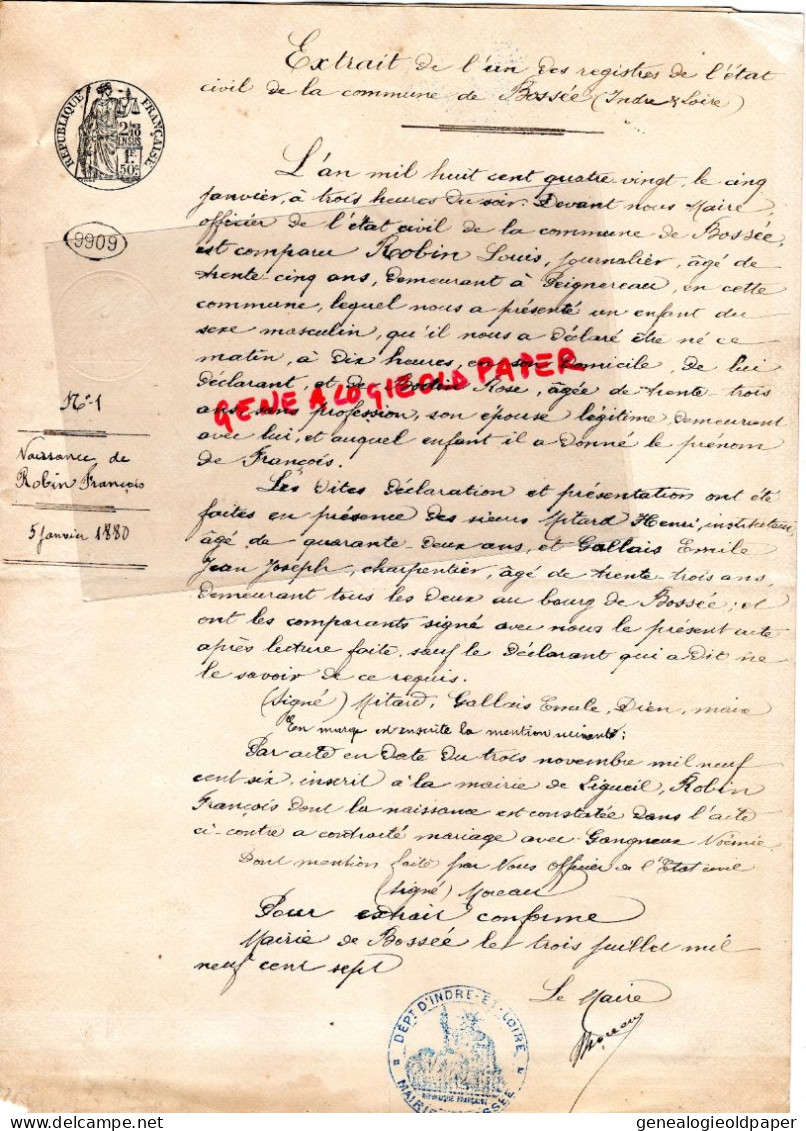 Extrait de l'un des registres de l'état
civil de la commune de Bossée (Indre & Loire)
RÉPUBLIQUE FRANÇAISE
2/10 EN SUS
1F 50c
9909
L'an mil huit cent quatre vingt, le cinq
janvier, à trois heures du soir. Devant nous Maire,
officier de l'état civil de la commune de Bossée,
est comparu Robin Louis, journalier, âgé de
trente-cinq ans, demeurant à Peignereau, en cette
commune, lequel nous a présenté un enfant du
sexe masculin, qu'il nous a déclaré être né ce
matin, à dix heures, en son domicile, de lui
déclarant, et de Bodin Rose, âgée de trente-trois
ans, sans profession, son épouse légitime, demeurant
avec lui, et auquel enfant il a donné le prénom
de François.
GENEALOGIEOLD PAPER
N° 1
Naissance de
Robin François
5 janvier 1880
Les dites déclaration et présentation ont été
faites en présence des sieurs Mitard Henri, instituteur
âgé de quarante-deux ans, et Gallais Emile
Jean Joseph, charpentier, âgé de trente-trois ans,
demeurant tous les deux au bourg de Bossée; et
ont les comparants signé avec nous le présent acte
après lecture faite, sauf le déclarant qui a dit ne
le savoir de ce requis.
(Signé) Mitard, Gallais Emile, Dien, maire
En marge est inscrite la mention suivante:
Par acte en date du trois novembre mil neuf
cent six, inscrit à la mairie de Ligueil, Robin
François dont la naissance est constatée dans l'acte
ci-contre a contracté mariage avec Gangneux Noémie.
Dont mention faite par Nous officier de l'Etat civil
(signé) Moreau
Pour extrait conforme
Mairie de Bossée le trois juillet mil
neuf cent sept
Le Maire
Moreau
DÉPT D'INDRE-ET-LOIRE
RÉPUBLIQUE FRANÇAISE
MAIRIE DE BOSSÉE
genealogieoldpaper